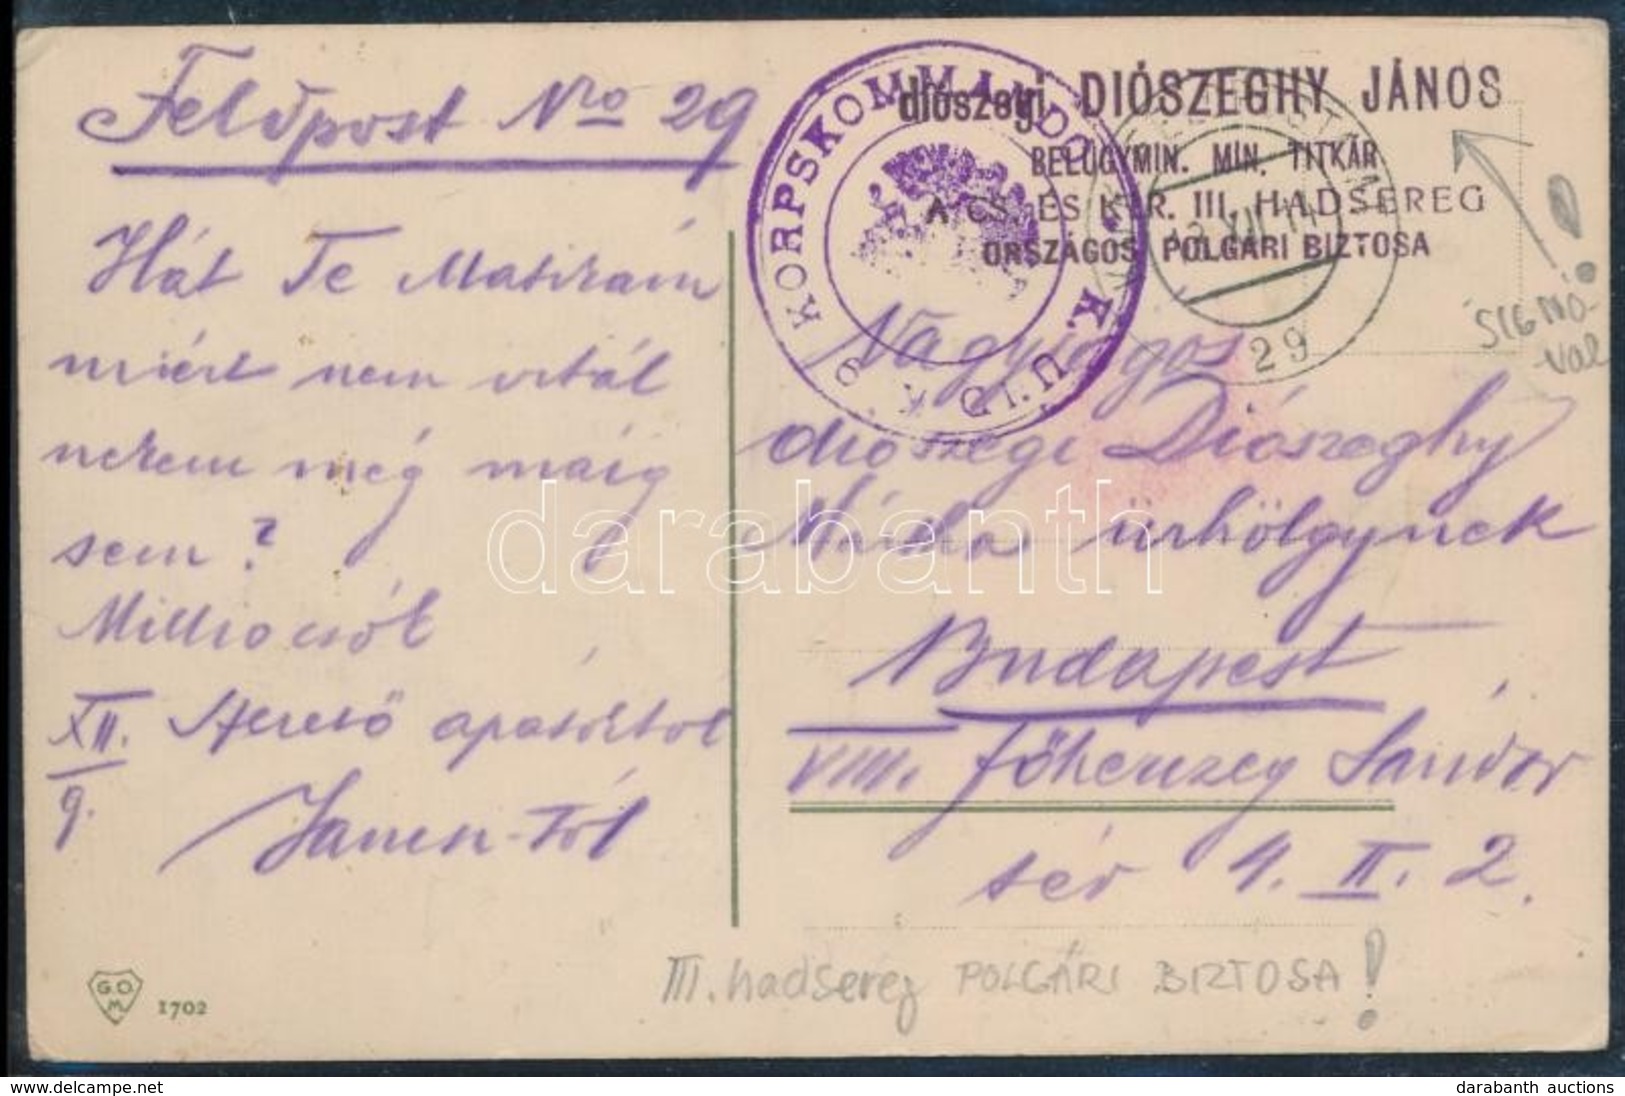 Feldpost Nro 29
Hát Te Matikám
miért nem irtál
nekem még máig
sem?
Milliocsók
XII. Szerető apatoktól
9.
Jancsi-tól
G.O.
M
1702
K. U. K. 9 KORPSKOMMANDO
diószegi DIÓSZEGHY JÁNOS
BELÜGYMIN. MIN. TITKÁR
A CS. ÉS KIR. III. HADSEREG
ORSZÁGOS POLGÁRI BIZTOSA
29
SIGNO-
VAL
!
Nagyságos
diószegi Diószeghy
Márta úrhölgynek
Budapest
VIII. Főherczeg Sándor
tér 4. II. 2.
III. hadsereg POLGÁRI BIZTOSA!
darabanth
darabanth.com
darabanth auctions